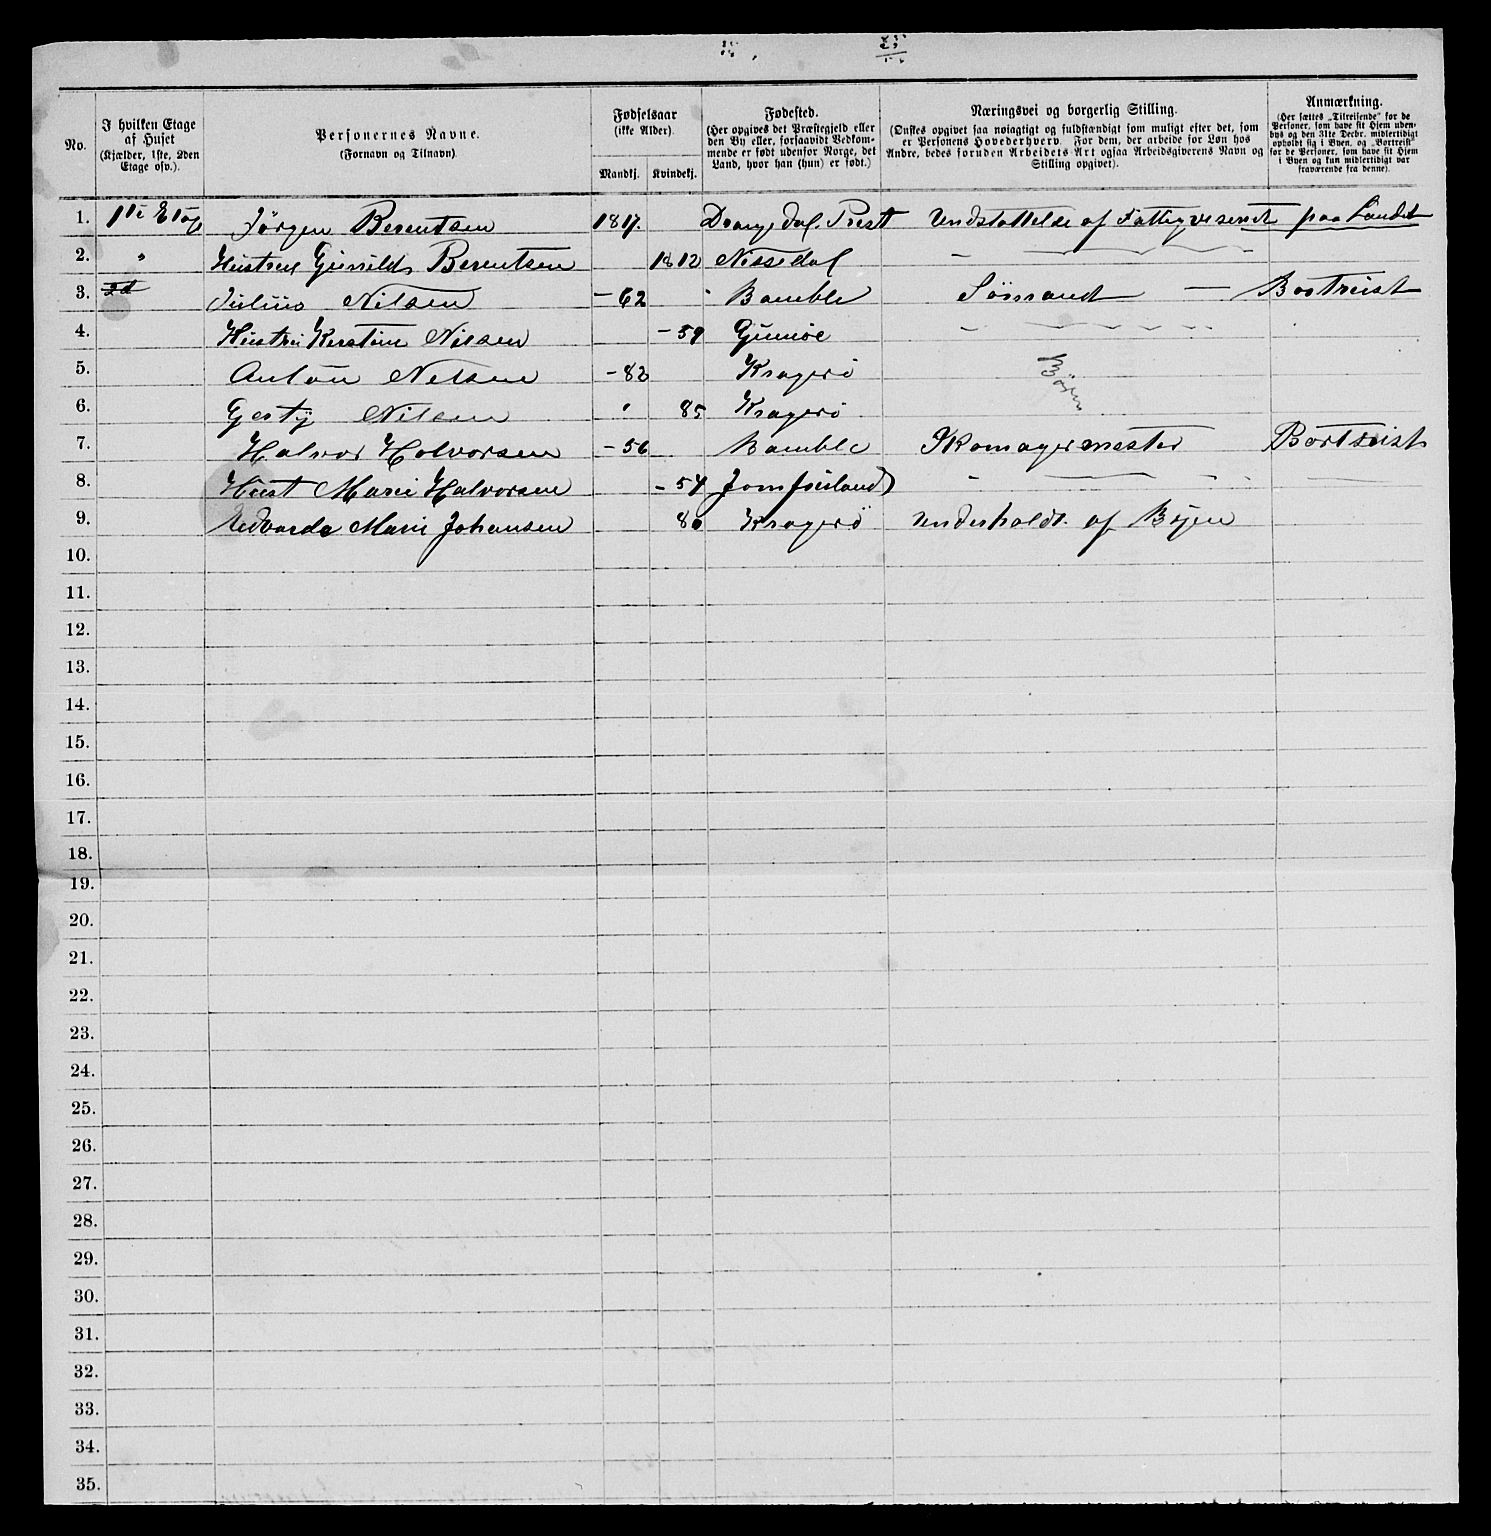 No.
I hvilken Etage af Huset (Kjælder, 1ste, 2den Etage osv.).
Personernes Navne. (Fornavn og Tilnavn)
Fødselsaar (ikke Alder).
Mandkj. Kvindekj.
Fødested. (Her opgives det Præstegjeld eller den By eller, forsaavidt Vedkommende er født udenfor Norge, det Land, hvor han (hun) er født.)
Næringsvei og borgerlig Stilling. (Ønskes opgivet saa nøiagtigt og fuldstændigt som muligt efter det, som er Personens Hovederhverv. For dem, der arbeide for Løn hos Andre, bedes foruden Arbeidets Art ogsaa Arbeidsgiverens Navn og Stilling opgivet).
Anmærkning. (Her sættes „Tilreisende" for de Personer, som have sit Hjem udenbys og den 31te Decbr. midlertidigt opholdt sig i Byen, og „Bortreist" for de Personer, som have sit Hjem i Byen og kun midlertidigt var fraværende fra denne).
1. 1ste Etag Jørgen Berentsen 1817. Drangedal. Prest Undstøttelse af Fattigvesenet paa Landet
2. " Hustru Gunild Berentsen 1812 Nissedal
3. 2d Julius Nilsen - 62 Bamble Sømand — Bortreist
4. Hustru Kerstine Nilsen - 59 Gumøe
5. Anton Nilsen - 82 Kragerö Börn
6. Gesty Nilsen " 85 Kragerö
7. Halvor Halvorsen - 56 Bamble Skomagermester Bortreist
8. Hust Marie Halvorsen - 54 Jomfruland
9. Edvarda Marie Johansen 80 Kragerö Underholdt af Byen
10.
11.
12.
13.
14.
15.
16.
17.
18.
19.
20.
21.
22.
23.
24.
25.
26.
27.
28.
29.
30.
31.
32.
33.
34.
35.